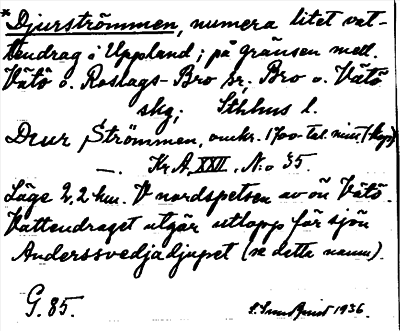 * Djurströmmen, numera litet vat-
tendrag i Uppland; på gränsen mell.
Vätö o. Roslags-Bro sr; Bro o. Vätö
skg; Sthlms l.
Diur Strömmen, omkr. 1700-tal. mitt (kop)
—. Kr. A. XXII, N:o 35.
Läge 2,2 km. V nordspetsen av ön Vätö.
Vattendraget utgör utlopp för sjön
Anderssvedjadjupet (se detta namn).
G. 85.
1936.